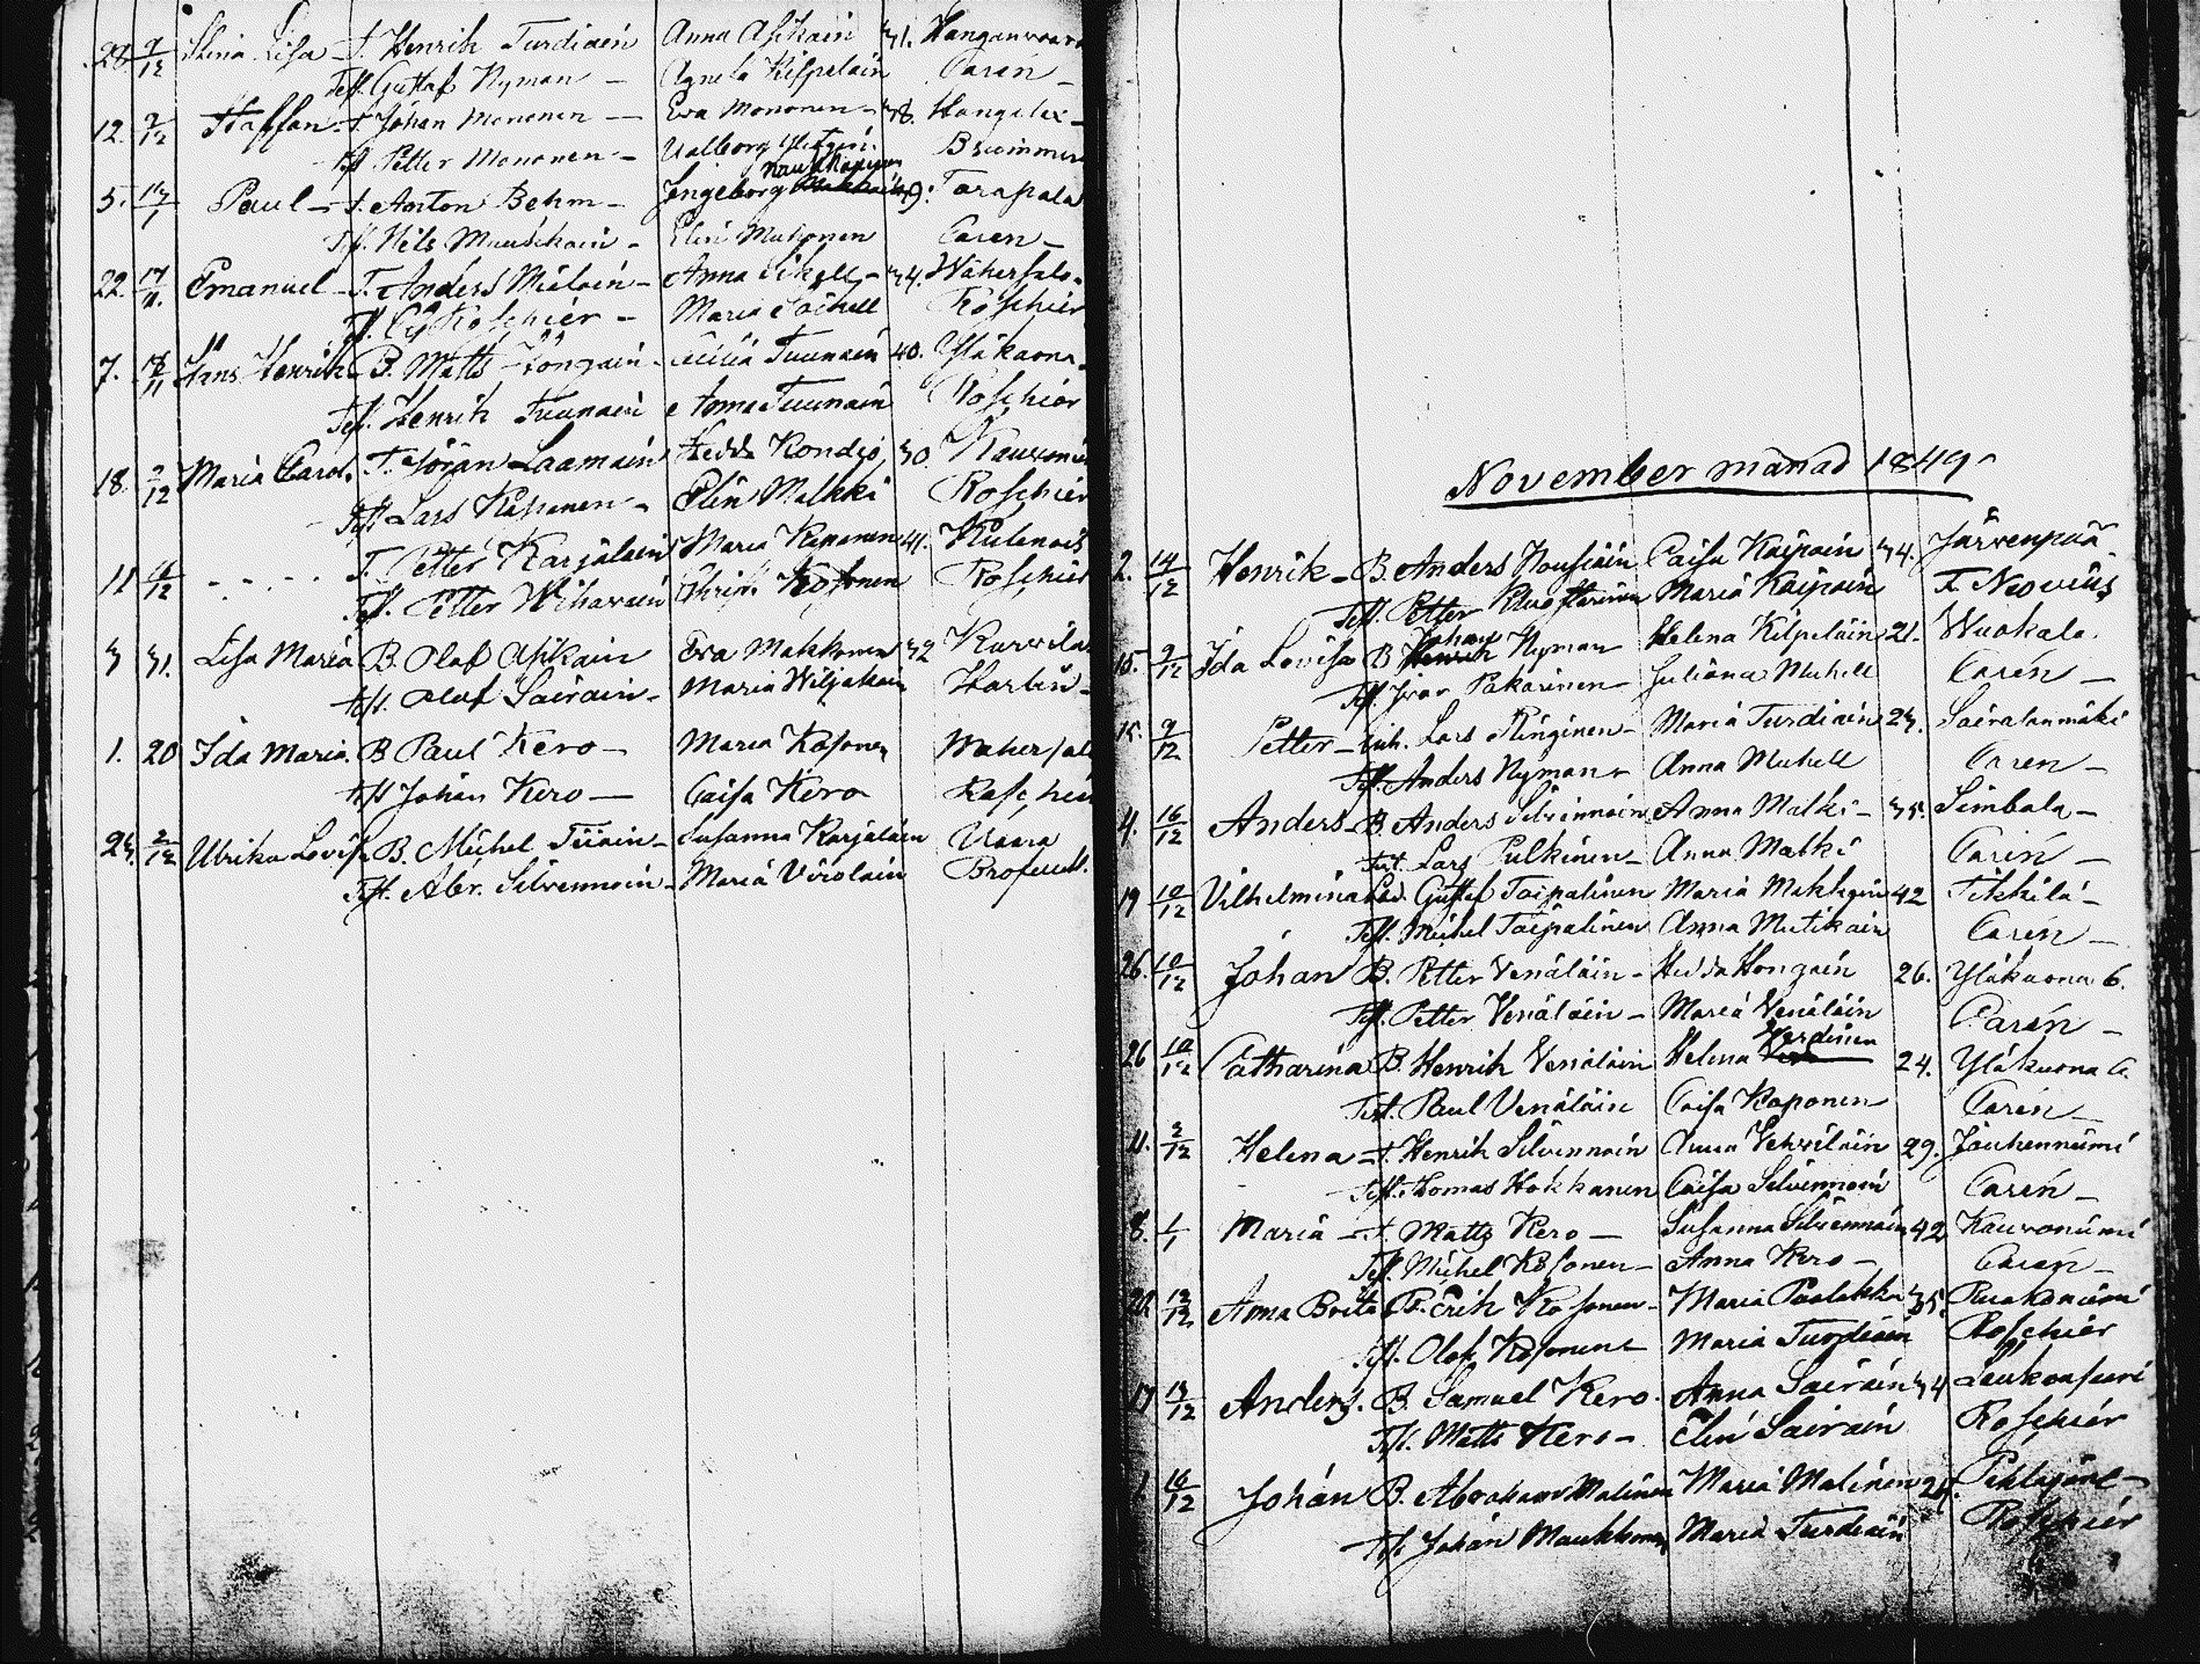 29. 9/12 Stina Lisa - T. Henrik Turdiain Anna Asikain 31. Hanganvaara
Test. Gustaf Nyman - Agneta Kilpelain Carén -
12. 9/12 Staffan - T. Johan Mononen - Eva Mononen - 38. Hangilax -
Test. Petter Mononen - Valborg Brummer
5. 13/1 Paul - T. Anton Behm - Ingeborg 49. Tarapala
Test. Nils Muuikain - Elin Muhonen Caren -
22. 17/11. Emanuel - T. Anders Mielain - Anna Sikell - 34. Wahersalo.
Test. Roschier - Maria Roschier
7. 18/11 Hans Henrik B. Matts Hongain - Cecilia Tuunain 40. Yläkuona.
Test. Henrik Tuunain Anna Tuunain Roschier
18. 2/12 Maria Carol. T. Jöran Laamain Hedda Kondio 30.
Test Lars Kaponen - Elin Malkki Roschier
11 11/12 - - - - T. Petter Karjalain Maria Kaponen 41. Kulenois
Test. Petter Wihavain Christ. Kosonen Roschier
3 31. Lisa Maria B. Olof Asikain Eva Makkonen 32
test. Olof Sairain - Maria Wiljakain Harlin -
1. 20 Ida Maria. B Paul Kero - Maria Kosonen Wahersalo
test Johan Kero - Caisa Kero Roschier
23. 2/12 Ulrika Lovis. B. Michel Tiiain - Susanna Karjalain Vaara
Test. Abr. Silvennoin - Maria Virolain Brofeldt.
November månad 1849
2. 14/12 Henrik - B. Anders Nousiain Caisa Kaipain 34. Järvenpää
Test. Petter Maria Kaipain F. Neovius
15. 9/12 Ida Lovisa B Johan Nyman Helena Kilpeläin 21. Wuokala.
Test. Ivar Pakarinen - Juliana Muhell Carén -
15. 9/12 Petter - Inh. Lars Ringinen - Maria Turdiain 23. Sairalanmäki
Test. Anders Nyman - Anna Muhell Caren -
4. 16/12 Anders - B. Anders Silvennoin Anna Malki - 35. Simbala -
Test. Lars Pulkinen - Anna Malki Carén -
19 10/12 Vilhelmina Gustaf Taipalinen Maria Makkoin 42 Tikkila -
Test. Michel Taipalinen Anna Mutikain Carén -
26. 10/12 Johan B. Petter Venäläin - Hedda Hongain 26. Yläkuona 6.
Test. Petter Venäläin - Maria Venäläin Carén -
26 10/12 Catharina B. Henrik Venäläin Helena Turdinen 24. Yläkuona 6.
Test. Paul Venäläin Caisa Kaponen Carén -
11. 2/12 Helena - T. Henrik Silvennoin Anna Vehviläin 29. Jouhenniemi
Test. Thomas Hokkanen Caisa Silvennoin Carén -
8. 1/1 Maria - T. Matts Kero - Susanna Silvennoin 42 Kauvoniemi
Test. Michel Kosonen - Anna Kero - Carén -
20. 12/12 Anna Brita B. Erik Kosonen - Maria Paalekka 35. Ruokoniemi
Test. Olof Kosonen Maria Turdiain Roschier
17 13/12 Anders. B. Samuel Kero. Anna Sairain 34 Laukansaari
Test. Matts Kero - Elin Sairain Roschiér
1 16/12 Johan B. Abraham Malinen Maria Malinen 24. Pihlajani -
Test. Johan Maukkonen Maria Turdiain Roschiér